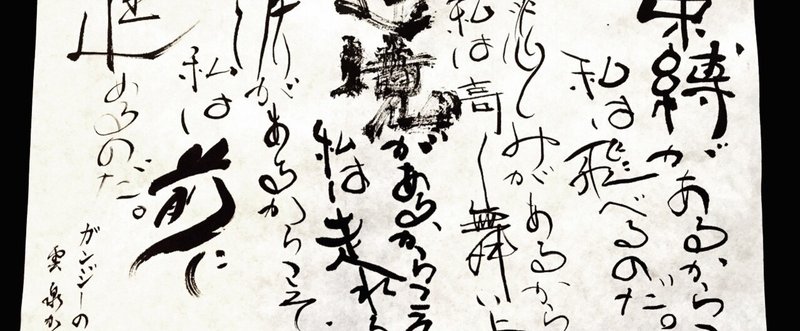 束縛があるからこ
私は飛べるのだ。
悲しみがあるから
私は高く舞い上
逆境があるからこそ
私は走れる
涙があるからこそ
私は前に
進めるのだ。
ガンジーの
雲泉か